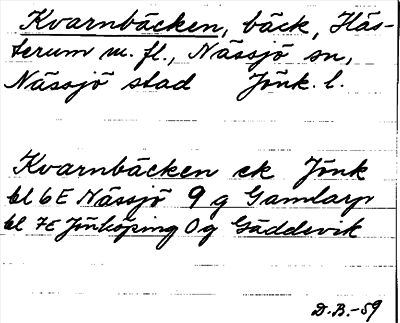 Kvarnbäcken, bäck, Häs-
terum m. fl., Nässjö sn,
Nässjö stad Jönk. l.
Kvarnbäcken ek Jönk
bl 6E Nässjö 9 g Gamlarp
bl 7E Jönköping 0 g Gäddevik
D.B.-59